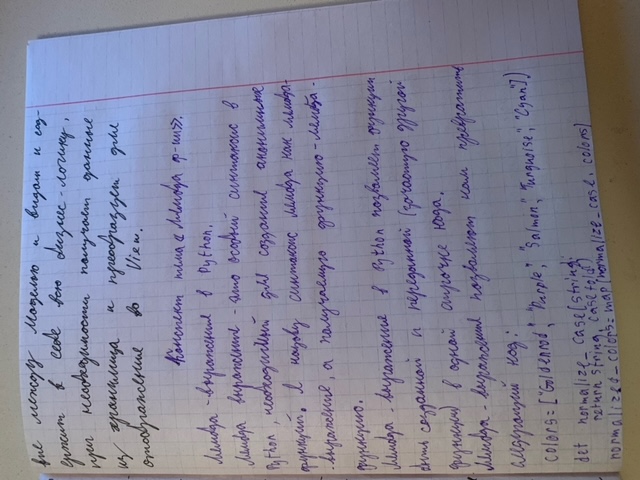 вие между Моделью и видом и сод-
ержит в себе всю бизнес-логику,
при необходимости получает данные
из хранилища и преобразует для
отображения во View.
Конспект тема «Лямбда ф-ии».
Лямбда-выражения в Python.
Лямбда выражение - это особый синтаксис в
Python, необходимый для создания анонимных
функций. Я назову синтаксис лямбда как лямбда-
-выражение, а получаемую функцию-лямбда-
функцию.
Лямбда-выражения в Python позволяет функции
быть созданной и переданной (зачастую другой
функции) в одной строчке кода.
Лямбда-выражения позволяют нам превратить
следующий код:
colors=["Goldenrod", "Purple", "Salmon", "Turquoise", "Cyan"])
def normalize_case(string:
return string.casefold()
normalized_colors=map(normalize_case, colors)